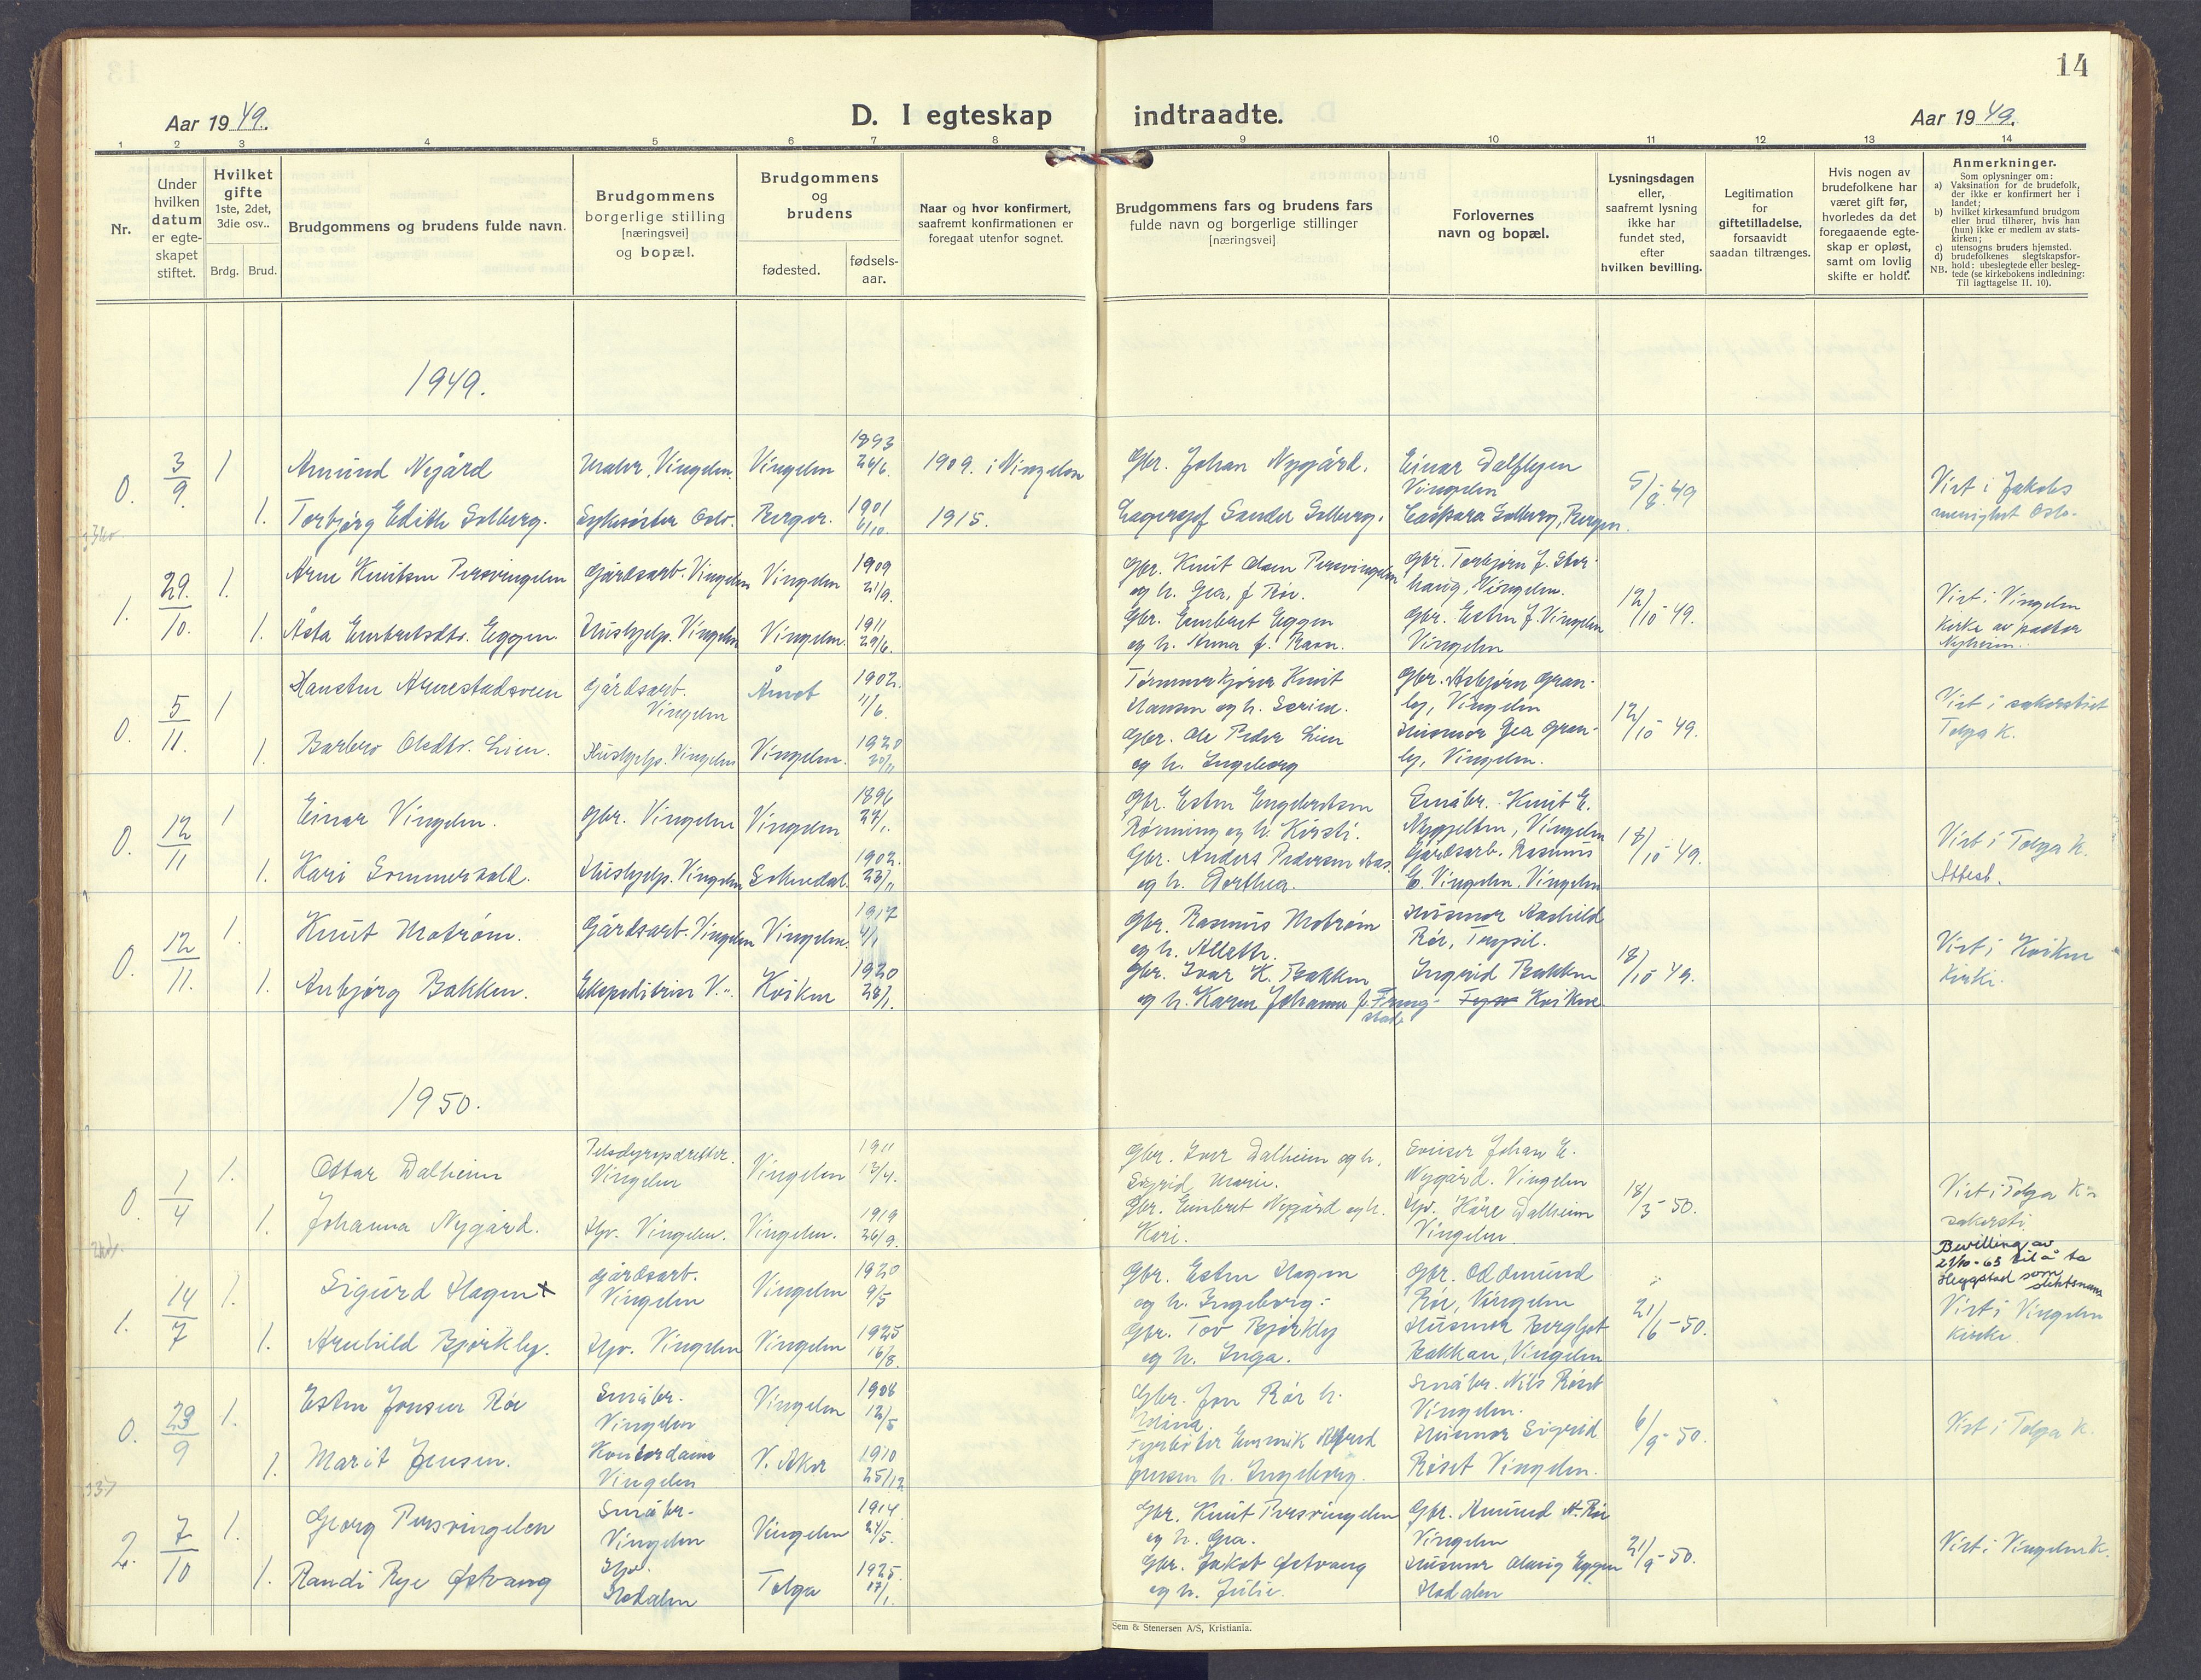 14
Aar 1949.
D. I egteskap indtraadte.
Aar 1949.
1 2 3 4 5 6 7 8 9 10 11 12 13 14
Nr.
Under
hvilken
datum
er egte-
skapet
stiftet.
Hvilket
gifte
1ste, 2det,
3die osv..
Brdg. Brud.
Brudgommens og brudens fulde navn.
Brudgommens
borgerlige stilling
[næringsvei]
og bopæl.
Brudgommens
og
brudens
fødested.
fødsels-
aar.
Naar og hvor konfirmert,
saafremt konfirmationen er
foregaat utenfor sognet.
Brudgommens fars og brudens fars
fulde navn og borgerlige stillinger
[næringsvei]
Forlovernes
navn og bopæl.
Lysningsdagen
eller,
saafremt lysning
ikke har
fundet sted,
efter
hvilken bevilling.
Legitimation
for
giftetilladelse,
forsaavidt
saadan tiltrænges.
Hvis nogen av
brudefolkene har
været gift før,
hvorledes da det
foregaaende egte-
skap er opløst,
samt om lovlig
skifte er holdt.
Anmerkninger.
Som oplysninger om:
a) Vaksination for de brudefolk,
der ikke er konfirmert her i
landet;
b) hvilket kirkesamfund brudgom
eller brud tilhører, hvis han
(hun) ikke er medlem av stats-
kirken;
c) utensogns bruders hjemsted.
d) brudefolkenes slegtskapsfor-
hold: ubeslegtede eller besleg-
NB. tede (se kirkebokens indledning:
Til iagttagelse II. 10).
1949.
0. 3/9 1 Amund Nygård
Maler, Vingelen. Vingelen 1893 24/6. 1909. i Vingelen
Gbr. Johan Nygård.
Einar Dalflyen
Vingelen
5/8-49
Viet i Jakobs
menighet Oslo.
1. Torbjørg Edith Solberg.
Sykesøster Oslo. Bergen. 1901 6/10. 1915.
Lagersjef Sander Solberg.
Caspara Solberg, Bergen.
1. 29./10. 1. Arne Knutsen Persvingelen
Gårdsarb. Vingelen Vingelen 1909 21/9.
Gbr. Knut Olsen Persvingelen
og h. Gea, f. Røe.
Gbr. Torbjørn J. Stor-
haug, Vingelen.
12/10-49.
Viet i Vingelen
Kirke av pastor
Nyheim.
1. Åsta Embretsdtr. Eggen.
Hushjelp. Vingelen Vingelen. 1911 29/6.
Gbr. Embret Eggen
og h. Anna f. Ravn.
Gbr. Esten J. Vingelen
Vingelen
0. 5/11. 1 Hansten Arnestadsveen
Gårdsarb.
Vingelen
Åmot 1902. 11/6.
Tømmerkjører Knut
Hansen og h. Serine.
Gbr. Asbjørn Gran-
ly, Vingelen
12/10-49.
Viet i sakerstiet
Tolga K.
1. Barbro Olsdtr. Lien.
Hushjelp. Vingelen Vingelen. 1920 30/11
Gbr. Ole Peder Lien
og h. Ingeborg
Husmor Gea Gran-
ly, Vingelen.
0. 12/11 1 Einar Vingelen.
Gbr. Vingelen Vingelen 1896 27/1.
Gbr. Esten Engebretsen
Rønning og h. Kirsti.
Småbr. Knut E.
Nygjelten, Vingelen
18/10-49.
Viet i Tolga K.
Attest.
1. Kari Sommervold.
Hushjelp. Vingelen Soknedal. 1902. 23/11
Gbr. Anders Pedersen Aas.
og h. Dorthea.
Gårdsarb. Rasmus
E. Vingelen, Vingelen
0. 12/11. 1. Knut Motrøen.
Gårdsarb. Vingelen Vingelen. 1917 4/1
Gbr. Rasmus Motrøen
og h. Allette.
Husmor Aashild
Røe,
18/10 49.
Viet i Kvikne
Kirke.
1. Anbjørg Bakken.
Ekspeditrise V. " Kvikne 1920 28/1.
Gbr. Ivar K. Bakken
og h. Karen Johanne f.
Ingrid Bakken
Kvikne
1950.
0. 1/4 1. Ottar Dalheim
Pelsdyroppdretter.
Vingelen
Vingelen 1911 13/4.
Gbr. Iver Dalheim og h.
Sigrid Marie.
Johan E.
Nygård. Vingelen
18/3-50.
Viet i Tolga K.
sakersti.
1. Johanna Nygård.
Hjv. Vingelen. Vingelen. 1919 26/9.
Gbr. Embret Nygård og h.
Kari.
Hjv. Kåre Dalheim
Vingelen
1. 14/7 1. Sigurd Hagen x
Gårdsarb.
Vingelen
Vingelen 1920 9/5
Gbr. Esten Hagen
og h. Ingeborg.
Gbr. Oddmund
Røe, Vingelen
21/6-50.
Bevilling av
21/10-65 til å ta
Heggstad som
slektsnavn
Viet i Vingelen
Kirke.
1. Arnhild Bjørkly.
Hjv. Vingelen Vingelen 1925 16/8.
Gbr. Tov Bjørkly
og h. Inga.
Husmor Bergljot
Bakkan, Vingelen
0. 23/9 1. Esten Jonsen Røe
Småbr.
Vingelen
Vingelen 1908 12/5
Gbr. Jon Røe h.
Småbr. Nils Røset
Vingelen.
6/9-50.
Viet i Tolga K.
1. Marit Jensen.
Kontordame
Vingelen
V. Aker 1910 25/12
Fyrbøter
Jensen h. Ingeborg.
Husmor Sigrid
Røset Vingelen.
2. 7/10 1. Georg Persvingelen
Småbr.
Vingelen
Vingelen 1914 24/5.
Gbr. Knut Persvingelen
og h. Gea.
Gbr. Amund A. Røe
Vingelen
21/9-50.
Viet i Vingelen K.
1. Randi Rye Østvang
Hjv.
Hodalen
Tolga 1925. 17/1.
Gbr. Jakob Østvang
og h. Julie.
Husmor Eggen
Hodalen
Sem & Stenersen A/S, Kristiania.